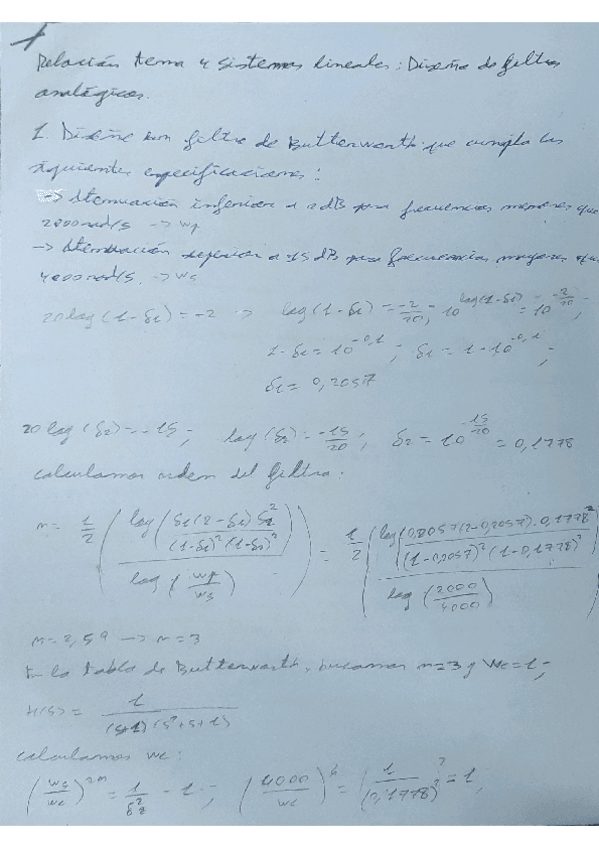 Relación tema 4 sistemas lineales: Diseño de filtros
analógicos.
1. Diseñe un filtro de Butterworth que cumpla las
siguientes especificaciones:
-> Atenuación inferior a 2dB para frecuencias menores que
2000 rad/s -> wp
-> Atenuación superior a 15 dB para frecuencias mayores que
4000 rad/s. -> ws
20log(1-δ1) = -2 -> log(1-δ1) = -2/20; 10^log(1-δ1) = 10^(-2/20);
1-δ1 = 10^-0,1; δ1 = 1-10^-0,1;
δ1 = 0,2057
20 log(δ2) = -15; log(δ2) = -15/20; δ2 = 10^(-15/20) = 0,1778
calculamos orden del filtro:
n = 1/2 (log(δ1(2-δ1)δ2^2 / (1-δ1)^2 (1-δ2)^2) / log(wp/ws)) = 1/2 (log(0,2057(2-0,2057).0,1778^2 / (1-0,2057)^2 (1-0,1778)^2) / log(2000/4000))
n = 2,59 -> n = 3
En la tabla de Butterworth, buscamos n=3 y wc=1;
H(s) = 1 / (s+1)(s^2+s+1)
calculamos wc:
(ws/wc)^2n = 1/δ2^2 - 1; (4000/wc)^6 = (1/(0,1778)^2) - 1;